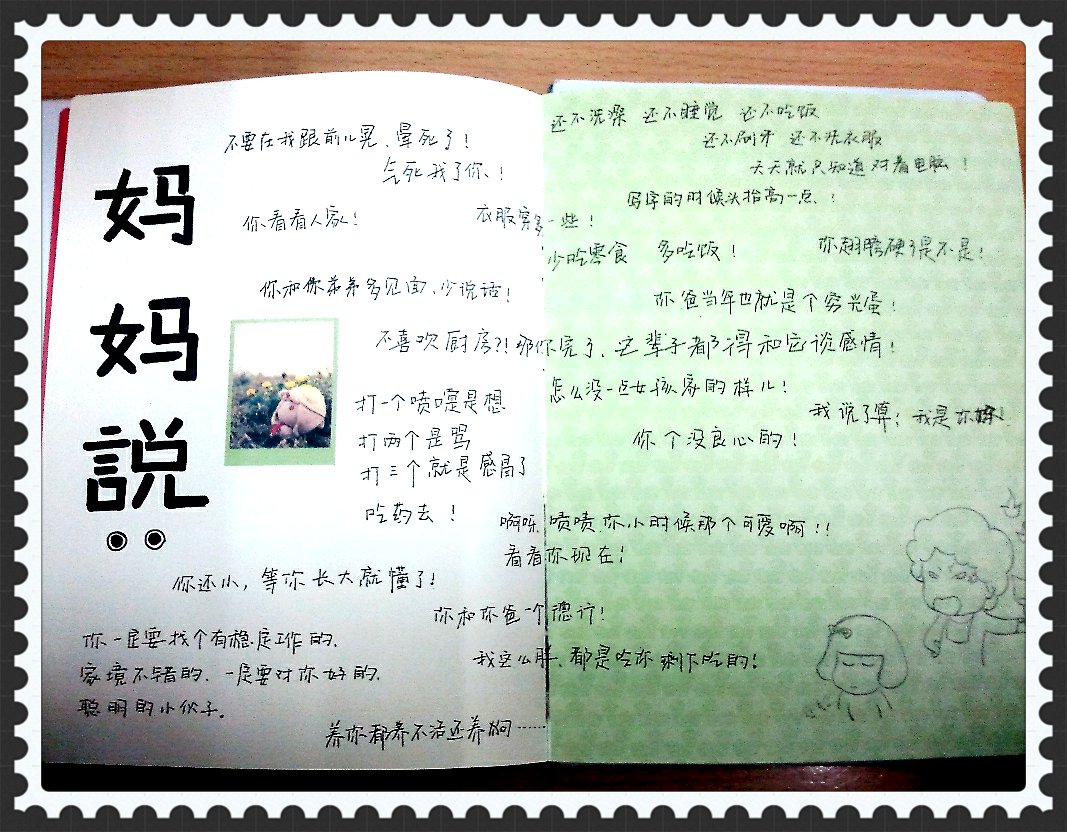 妈妈説
不要在我跟前儿晃、晕死了！
气死我了你、！
你看看人家！
衣服穿多一些！
你和你弟弟多见面、少说话！
不喜欢厨房?！那你完了、这辈子都得和它谈感情！
打一个喷嚏是想
打两个是骂
打三个就是感冒了
吃药去！
啊呀、啧啧、你小时候那个可爱啊！！
看看你现在！
你还小，等你长大就懂了！
你和你爸一个德行！
你一定要找个有稳定工作的、
家境不错的、一定要对你好的、
聪明的小伙子。
我这么胖、都是吃你剩下吃的！
养你都养不活还养狗……
还不洗澡 还不睡觉 还不吃饭
还不刷牙 还不洗衣服
天天就只知道对着电脑！
写字的时候头抬高一点、！
少吃零食 多吃饭！
你翅膀硬了是不是！
你爸当年也就是个穷光蛋！
怎么没一点女孩家的样儿！
我说了算；我是你妈！
你个没良心的！